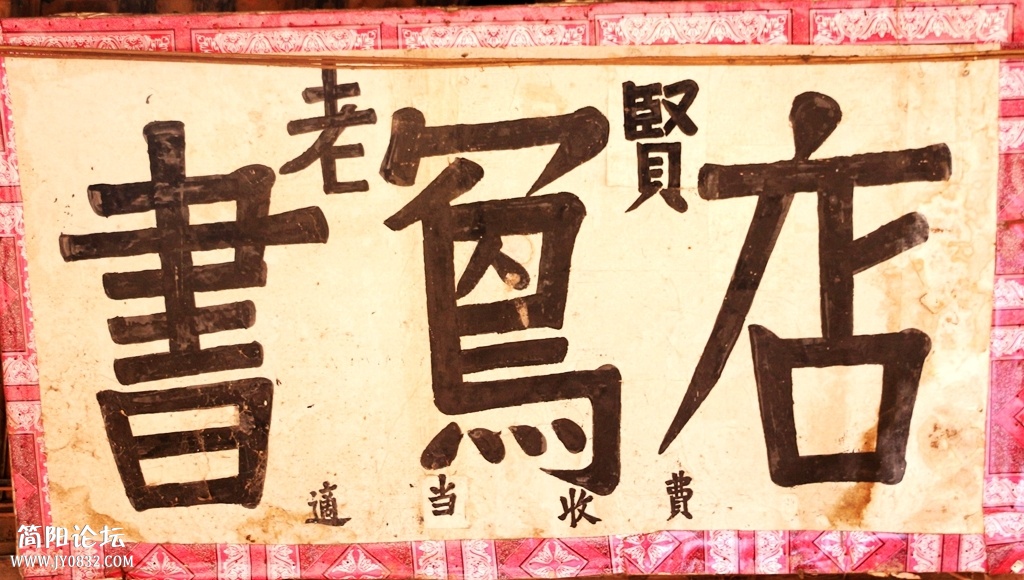 老賢
書冩店
適当收費
简阳论坛
WWW.JY0832.COM